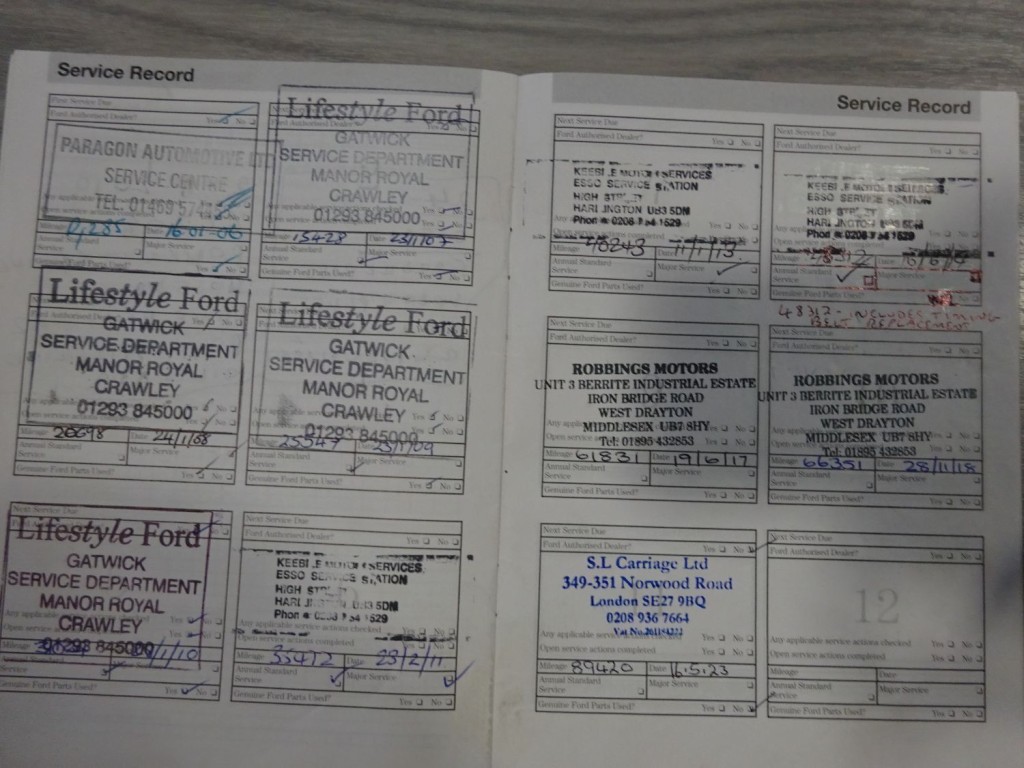 Service Record
First Service Due
Ford Authorised Dealer? Yes No
PARAGON AUTOMOTIVE LTD
SERVICE CENTRE
TEL: 01469
Mileage Date 16 01 06
Annual Standard Service Major Service
Genuine Ford Parts Used? Yes No
Lifestyle Ford
Ford Authorised Dealer?
GATWICK
SERVICE DEPARTMENT
MANOR ROYAL
CRAWLEY
01293 845000
15428 Date
Annual Standard Service Major Service
Genuine Ford Parts Used? Yes No
Lifestyle Ford
Ford Authorised Dealer? Yes No
GATWICK
SERVICE DEPARTMENT
MANOR ROYAL
CRAWLEY
01293 845000
Mileage 20698 Date 24/1/08
Annual Standard Service Major Service
Genuine Ford Parts Used? Yes No
Lifestyle Ford
GATWICK
SERVICE DEPARTMENT
MANOR ROYAL
CRAWLEY
01293 845000
Mileage 25547 /09
Annual Standard Service Major Service
Genuine Ford Parts Used? Yes No
Lifestyle Ford
GATWICK
SERVICE DEPARTMENT
MANOR ROYAL
CRAWLEY
01293 845000
Mileage /1/10
Genuine Ford Parts Used? Yes No
Next Service Due
Ford Authorised Dealer? Yes No
KEEBLE MOTOR SERVICES
ESSO SERVICE STATION
HIGH STREET
HARLINGTON UB3 5DN
Phone # 0208 754 1529
Open service actions completed
Mileage 35472 Date 23/2/11
Annual Standard Service Major Service
Genuine Ford Parts Used? Yes No
Service Record
Next Service Due
Ford Authorised Dealer? Yes No
KEEBLE MOTOR SERVICES
ESSO SERVICE STATION
HIGH STREET
HARLINGTON UB3 5DN
Phone # 0208 754 1529
Mileage 48243 Date 11/1/13
Annual Standard Service Major Service
Genuine Ford Parts Used? Yes No
Next Service Due
Ford Authorised Dealer? Yes No
KEEBLE MOTOR SERVICES
ESSO SERVICE STATION
HIGH STREET
HARLINGTON UB3 5DN
Phone # 0208 754 1529
Open service actions
Mileage 48312 Date
Annual Standard Service Major Service
Genuine Ford Parts Used?
48312 - INCLUDES TIMING
BELT REPLACEMENT
Next Service Due
Ford Authorised Dealer? Yes No
ROBBINGS MOTORS
UNIT 3 BERRITE INDUSTRIAL ESTATE
IRON BRIDGE ROAD
WEST DRAYTON
MIDDLESEX UB7 8HY
Tel: 01895 432853
Mileage 61831 Date 19/6/17
Annual Standard Service Major Service
Genuine Ford Parts Used? Yes No
Next Service Due
Ford Authorised Dealer? Yes No
ROBBINGS MOTORS
UNIT 3 BERRITE INDUSTRIAL ESTATE
IRON BRIDGE ROAD
WEST DRAYTON
MIDDLESEX UB7 8HY
Tel: 01895 432853
Mileage 66351 Date 28/11/18
Annual Standard Service Major Service
Genuine Ford Parts Used? Yes No
Next Service Due
Ford Authorised Dealer? Yes No
S.L Carriage Ltd
349-351 Norwood Road
London SE27 9BQ
0208 936 7664
Vat No.
Any applicable service actions checked Yes No
Open service actions completed Yes No
Mileage 89420 Date 16.5.23
Annual Standard Service Major Service
Genuine Ford Parts Used? Yes No
Next Service Due
Ford Authorised Dealer? Yes No
12
Any applicable service actions checked Yes No
Open service actions completed Yes No
Mileage Date
Annual Standard Service Major Service
Genuine Ford Parts Used? Yes No